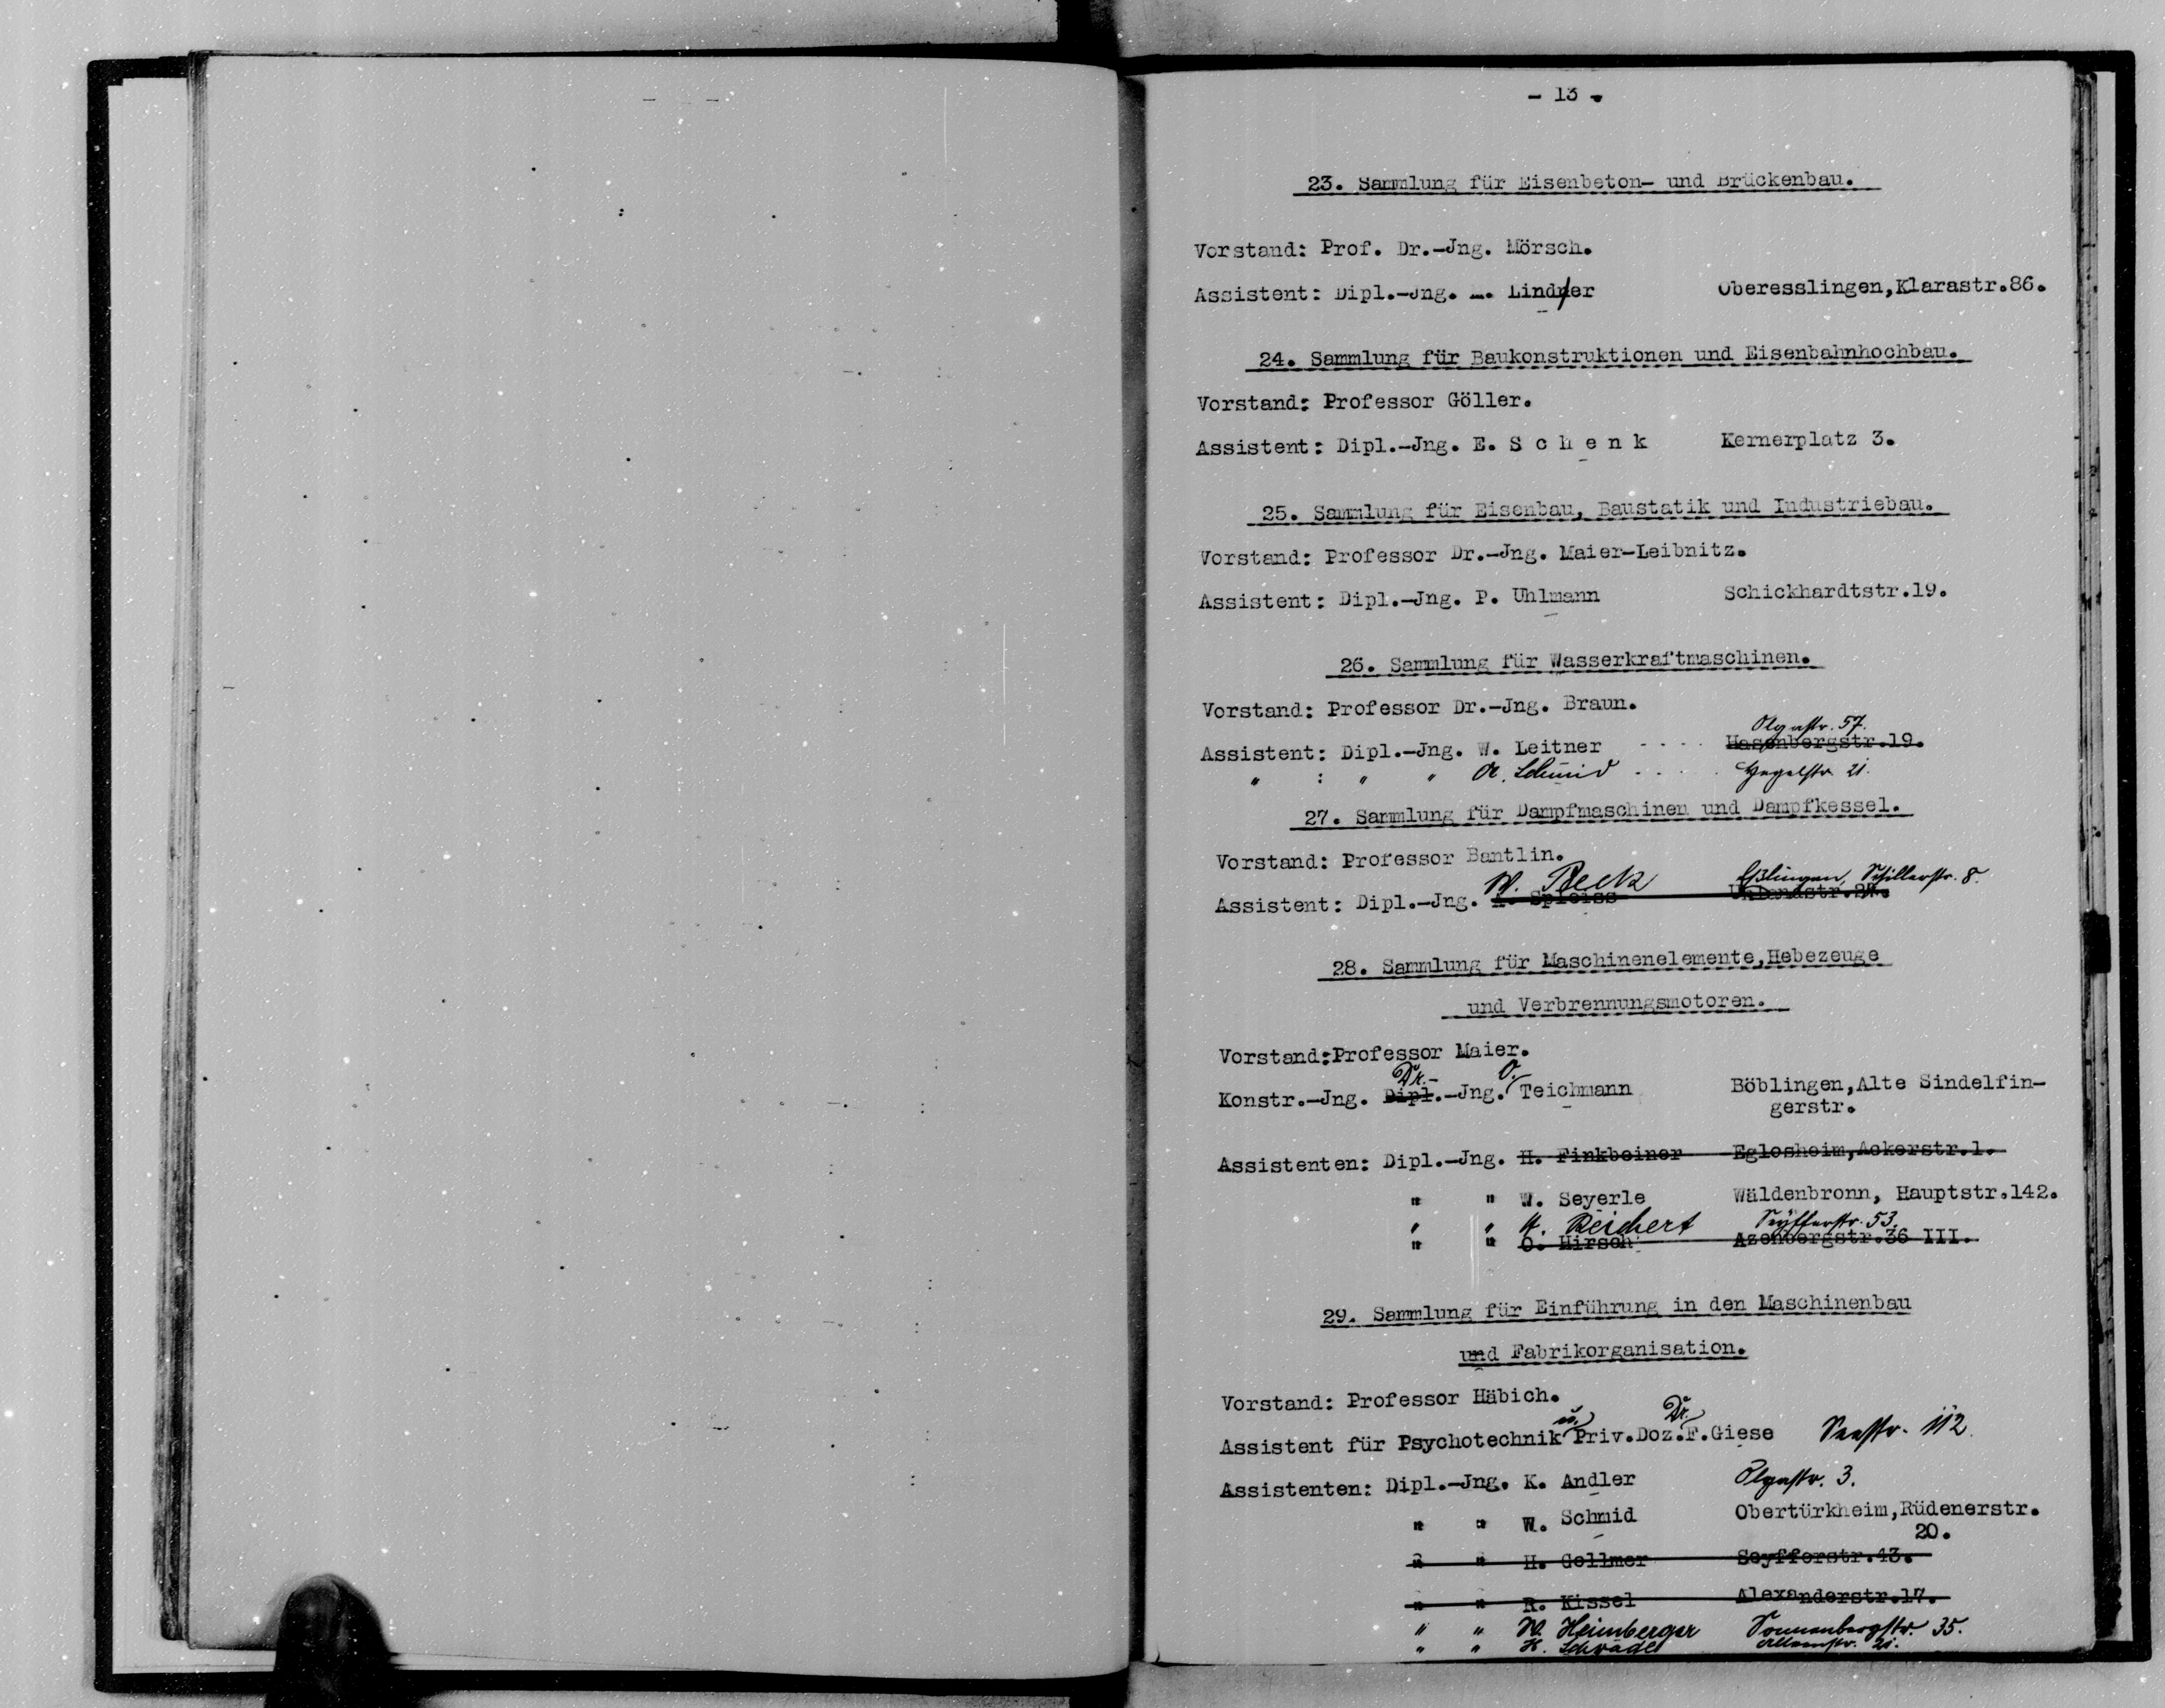 - 13 -
23. Sammlung für Eisenbeton- und Brückenbau.
Vorstand: Prof. Dr.-Jng. Mörsch.
Assistent: Dipl.-Jng. Lindner Oberesslingen,Klarastr.86.
24. Sammlung für Baukonstruktionen und Eisenbahnhochbau.
Vorstand: Professor Göller.
Assistent: Dipl.-Jng. E. S c h e n k Kernerplatz 3.
25. Sammlung für Eisenbau, Baustatik und Industriebau.
Vorstand: Professor Dr.-Jng. Maier-Leibnitz.
Assistent: Dipl.-Jng. P. Uhlmann Schickhardtstr.19.
26. Sammlung für Wasserkraftmaschinen.
Vorstand: Professor Dr.-Jng. Braun.
Olgastr. 57.
Assistent: Dipl.-Jng. W. Leitner - - - - Hasenbergstr.19.
" : " " A. Schmid - - - - Hegelstr. 21.
27. Sammlung für Dampfmaschinen und Dampfkessel.
Vorstand: Professor Bantlin.
W. Reck Eßlingen, Schillerstr. 8.
Assistent: Dipl.-Jng. A. Spleiss
28. Sammlung für Maschinenelemente,Hebezeuge
und Verbrennungsmotoren.
Vorstand:Professor Maier.
Dr.- O.
Konstr.-Jng. Dipl.-Jng. Teichmann Böblingen,Alte Sindelfin-
gerstr.
Assistenten: Dipl.-Jng. H. Finkbeiner Eglosheim,Ackerstr.1.
" " W. Seyerle Wäldenbronn, Hauptstr.142.
" " Reichert Seyfferstr. 53.
" " O. Hirsch Azenbergstr.36 III.
29. Sammlung für Einführung in den Maschinenbau
und Fabrikorganisation.
Vorstand: Professor Häbich.
u. Dr.
Assistent für Psychotechnik Priv.Doz.F.Giese Seestr. 112
Assistenten: Dipl.-Jng. K. Andler Olgastr. 3.
" " W. Schmid Obertürkheim,Rüdenerstr.
20.
" " H. Gollmer Seyfferstr.43.
" " R. Kissel Alexanderstr.17.
" " W. Heimberger Sonnenbergstr. 35.
" " H. Schrade 21.